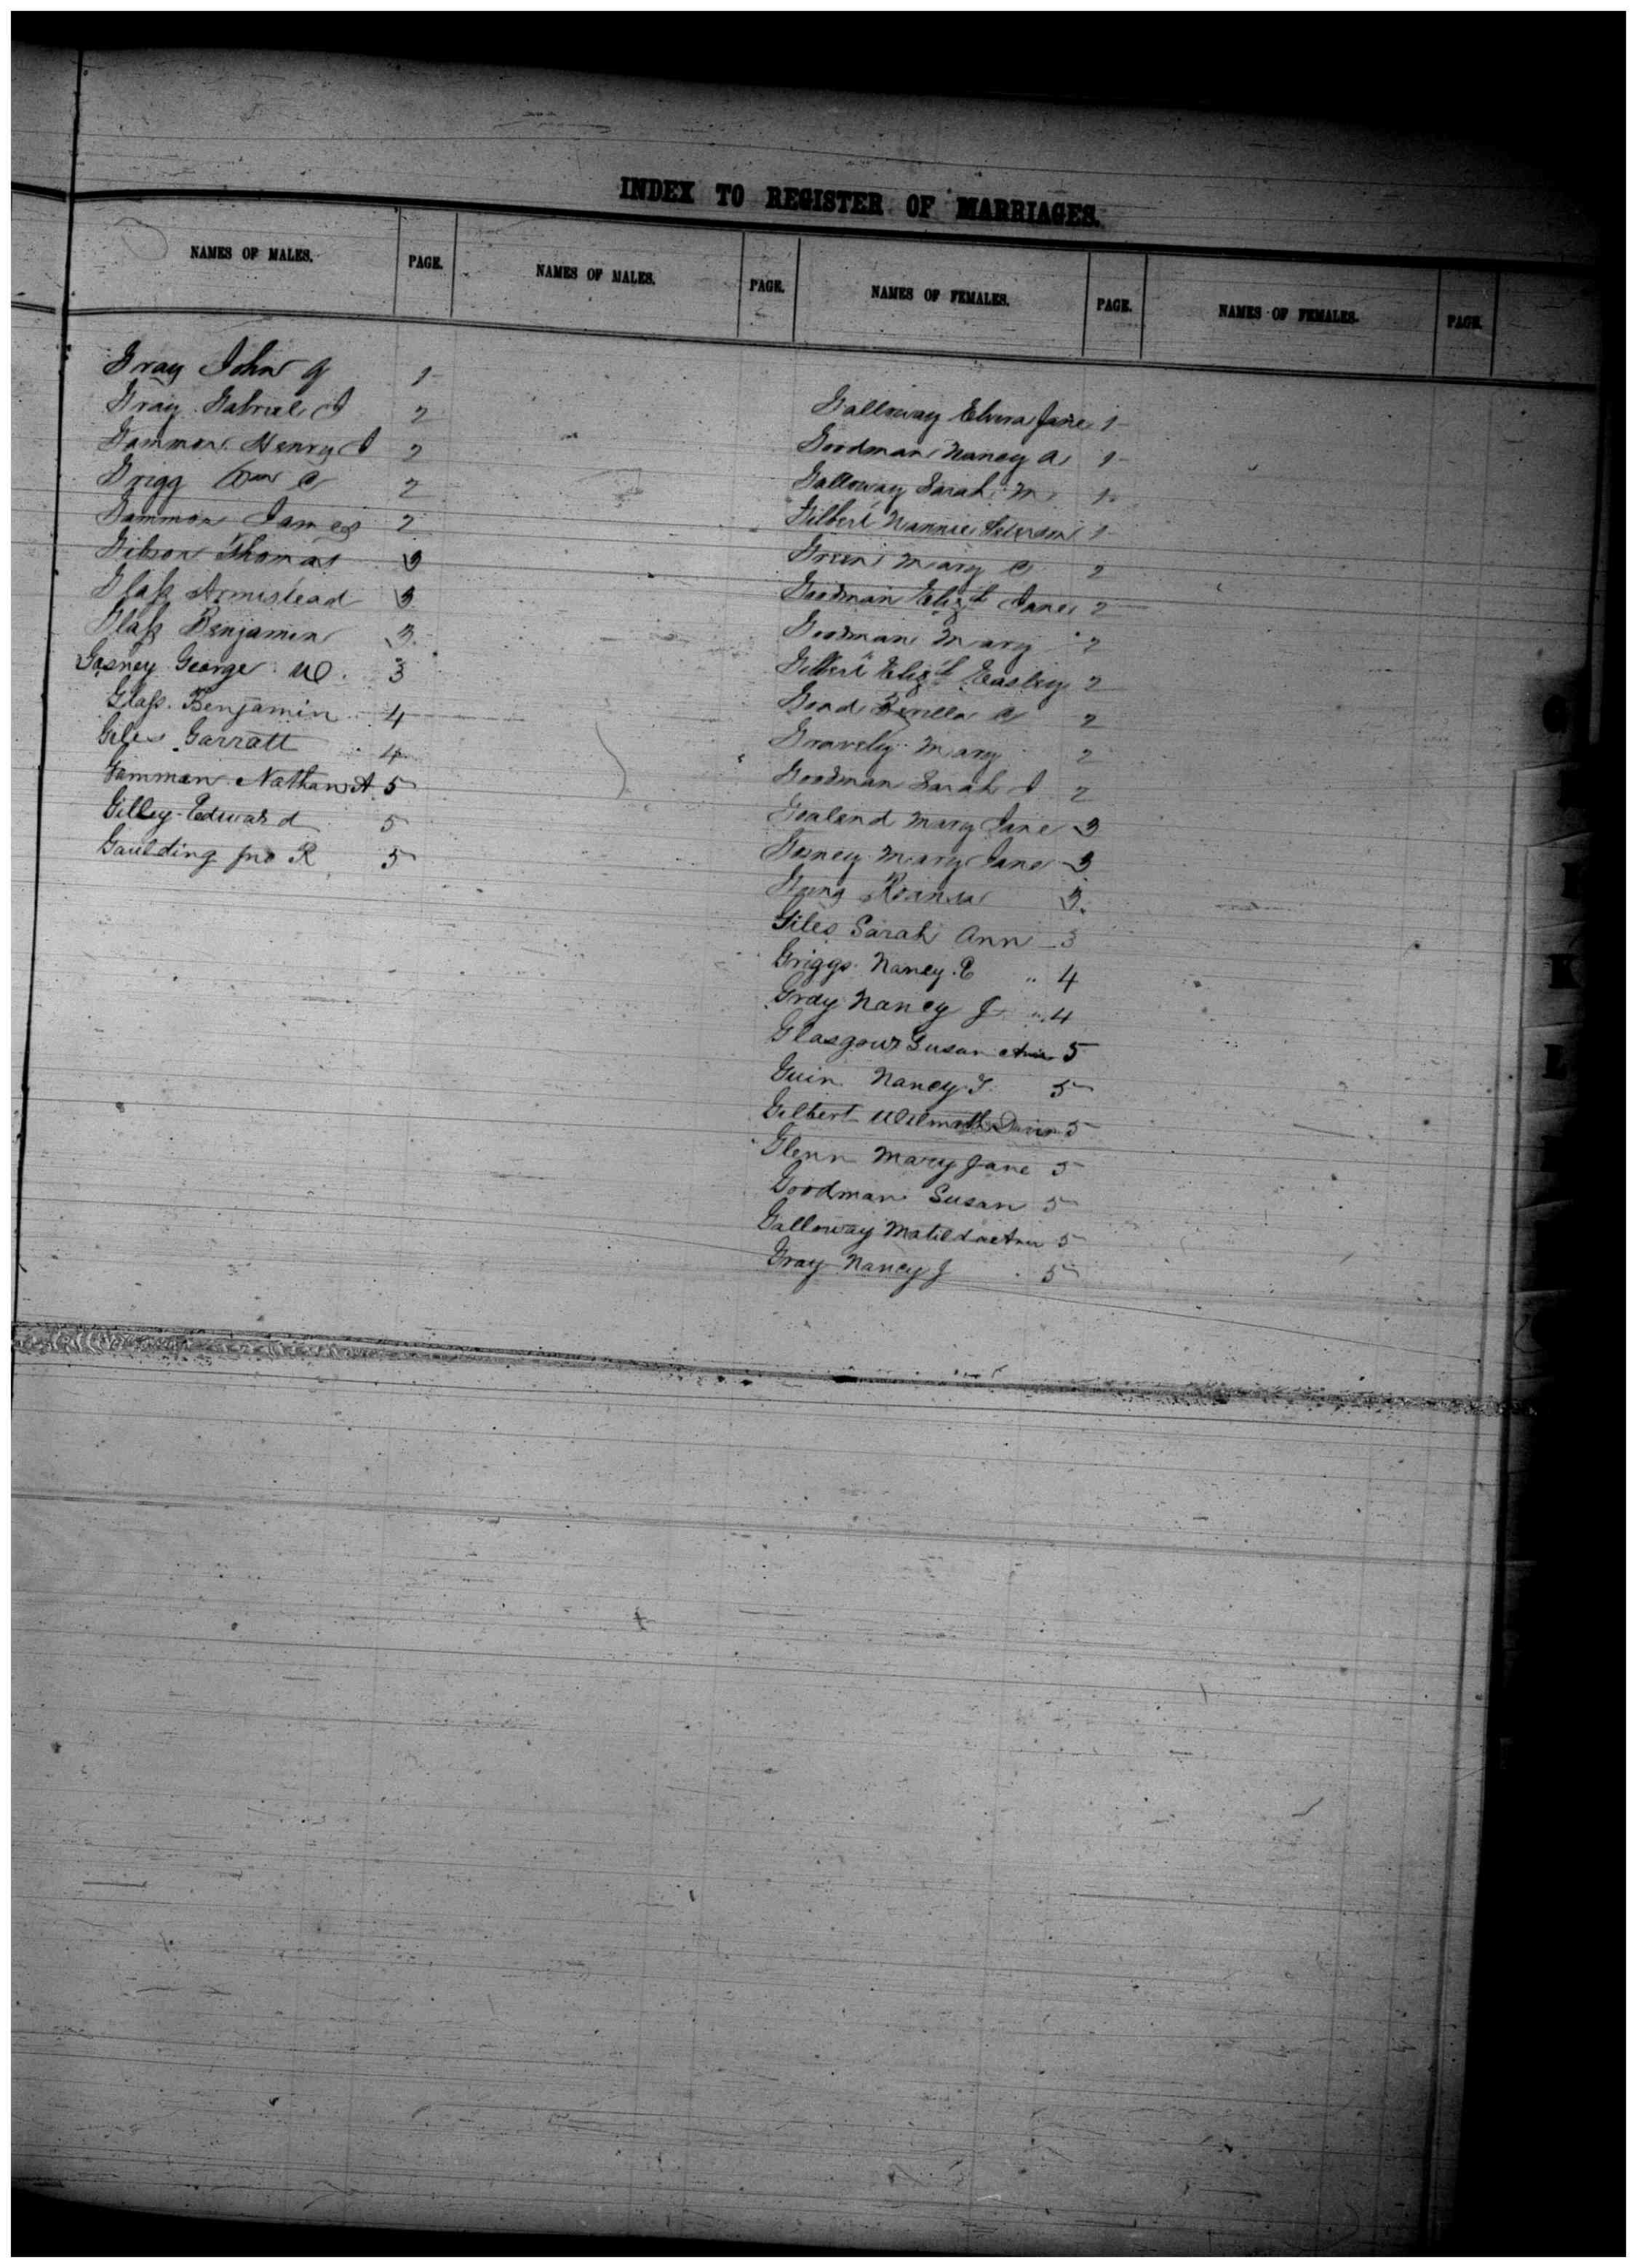 INDEX TO REGISTER OF MARRIAGES.
NAMES OF MALES. PAGE. NAMES OF MALES. PAGE. NAMES OF FEMALES. PAGE. NAMES OF FEMALES. PAGE.
Gray John G 1
Gray Gabriel J 2
Gammon Henry J 2
Grigg Wm C 2
Gammon James 2
Gibson Thomas 3
Glass Armistead 3
Glass Benjamin 3
Gosney George W. 3
Glass Benjamin 4
Giles Garratt 4
Gammon Nathan A 5
Gilley Edward 5
Gaulding Jno R 5
Galloway Elvira Jane 1
Goodman Nancy A 1
Galloway Sarah M 1
Gilbert Nannie 1
Green Mary C 2
Goodman Elizth Jane 2
Goodman Mary 2
Gilbert Elizth Easley 2
Goad C 2
Gravely Mary 2
Goodman Sarah J 2
Mary Jane 3
Gosney Mary Jane 3
3
Giles Sarah Ann 3
Griggs Nancy E " 4
Gray Nancy J " 4
Glasgow Susan Ann 5
Guin Nancy T. 5
Gilbert Wilmoth 5
Glenn Mary Jane 5
Goodman Susan 5
Galloway Matilda Ann 5
Gray Nancy J 5
G
K
L